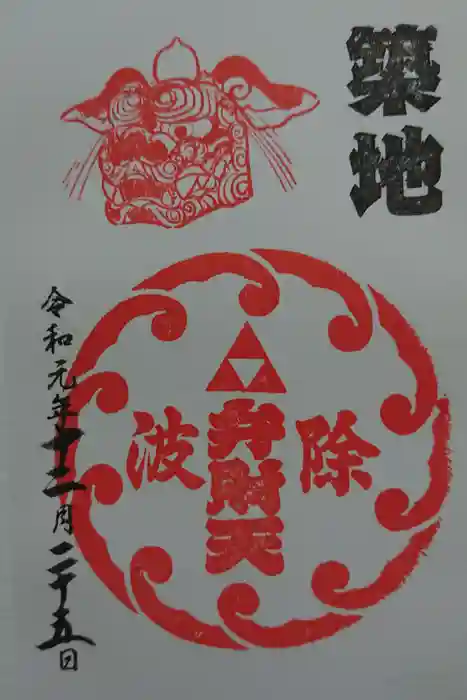 築地
除波
弁財天
令和元年十二月二十五日